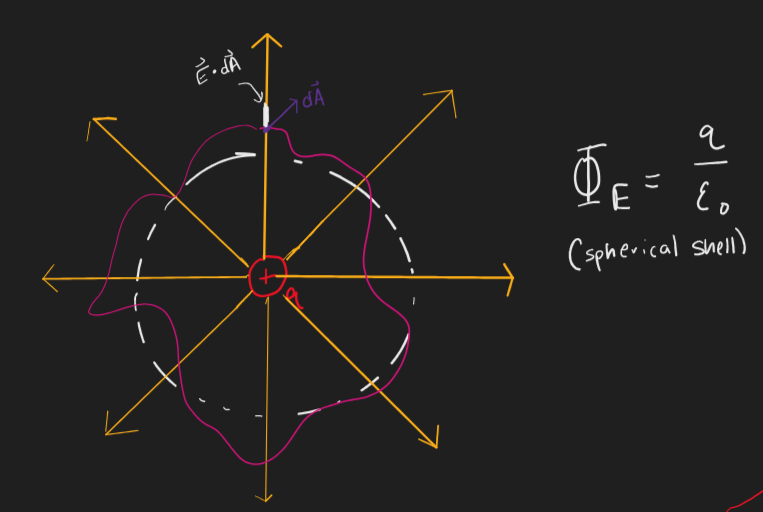 E⃗·dA⃗
dA⃗
+
q
Φ_E = q/ε₀
(spherical shell)